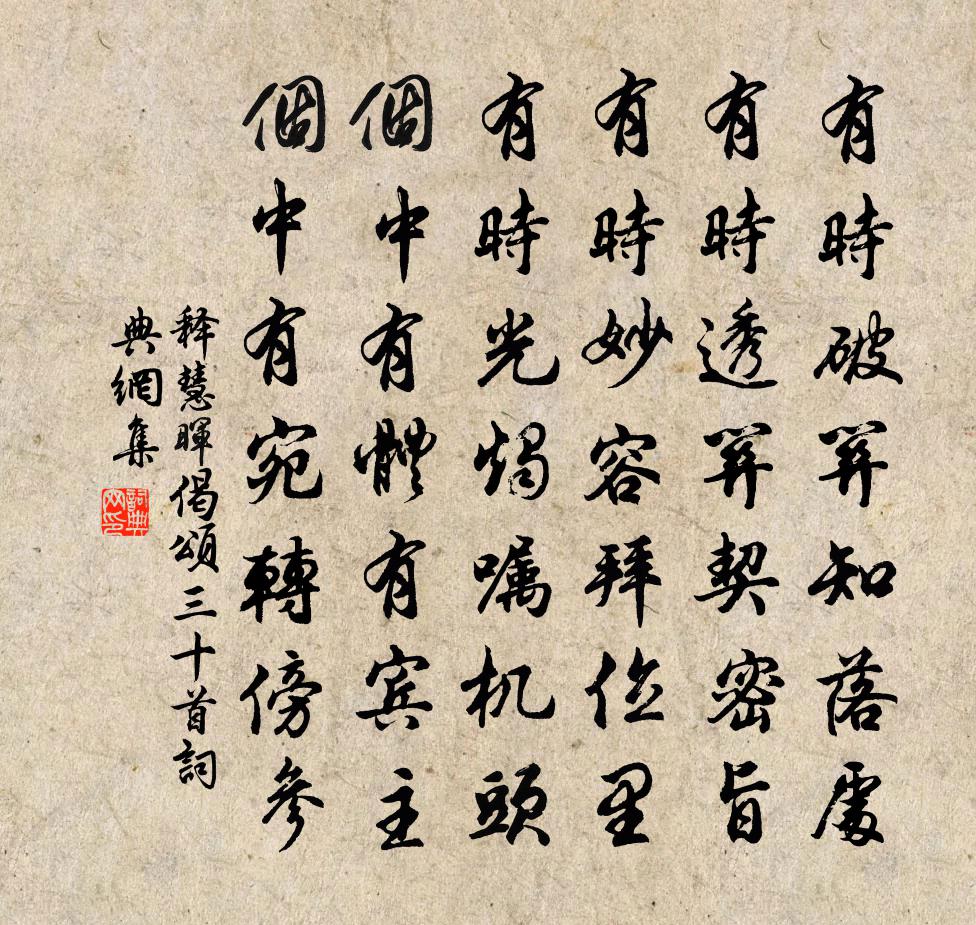 有時破關知落處
有時透關契密旨
有時妙容拜位里
有時光燭嘱机頭
個中有體有宾主
個中有宛轉傍參
释慧暉偈頌三十首詞
典網集
詞典
网印